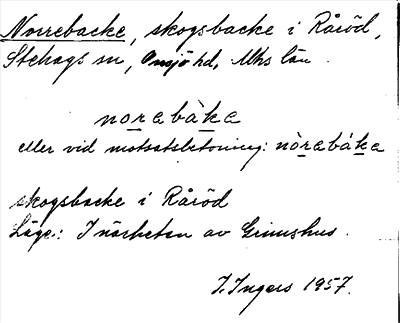 Norrebacke, skogsbacke i Råröd,
Stehags sn, Onsjö hd, Mhs län.
norabàka
eller vid motsatsbetoning: nòrabáka
skogsbacke i Råröd
Läge: I närheten av Grimshus.
I. Ingers 1957.